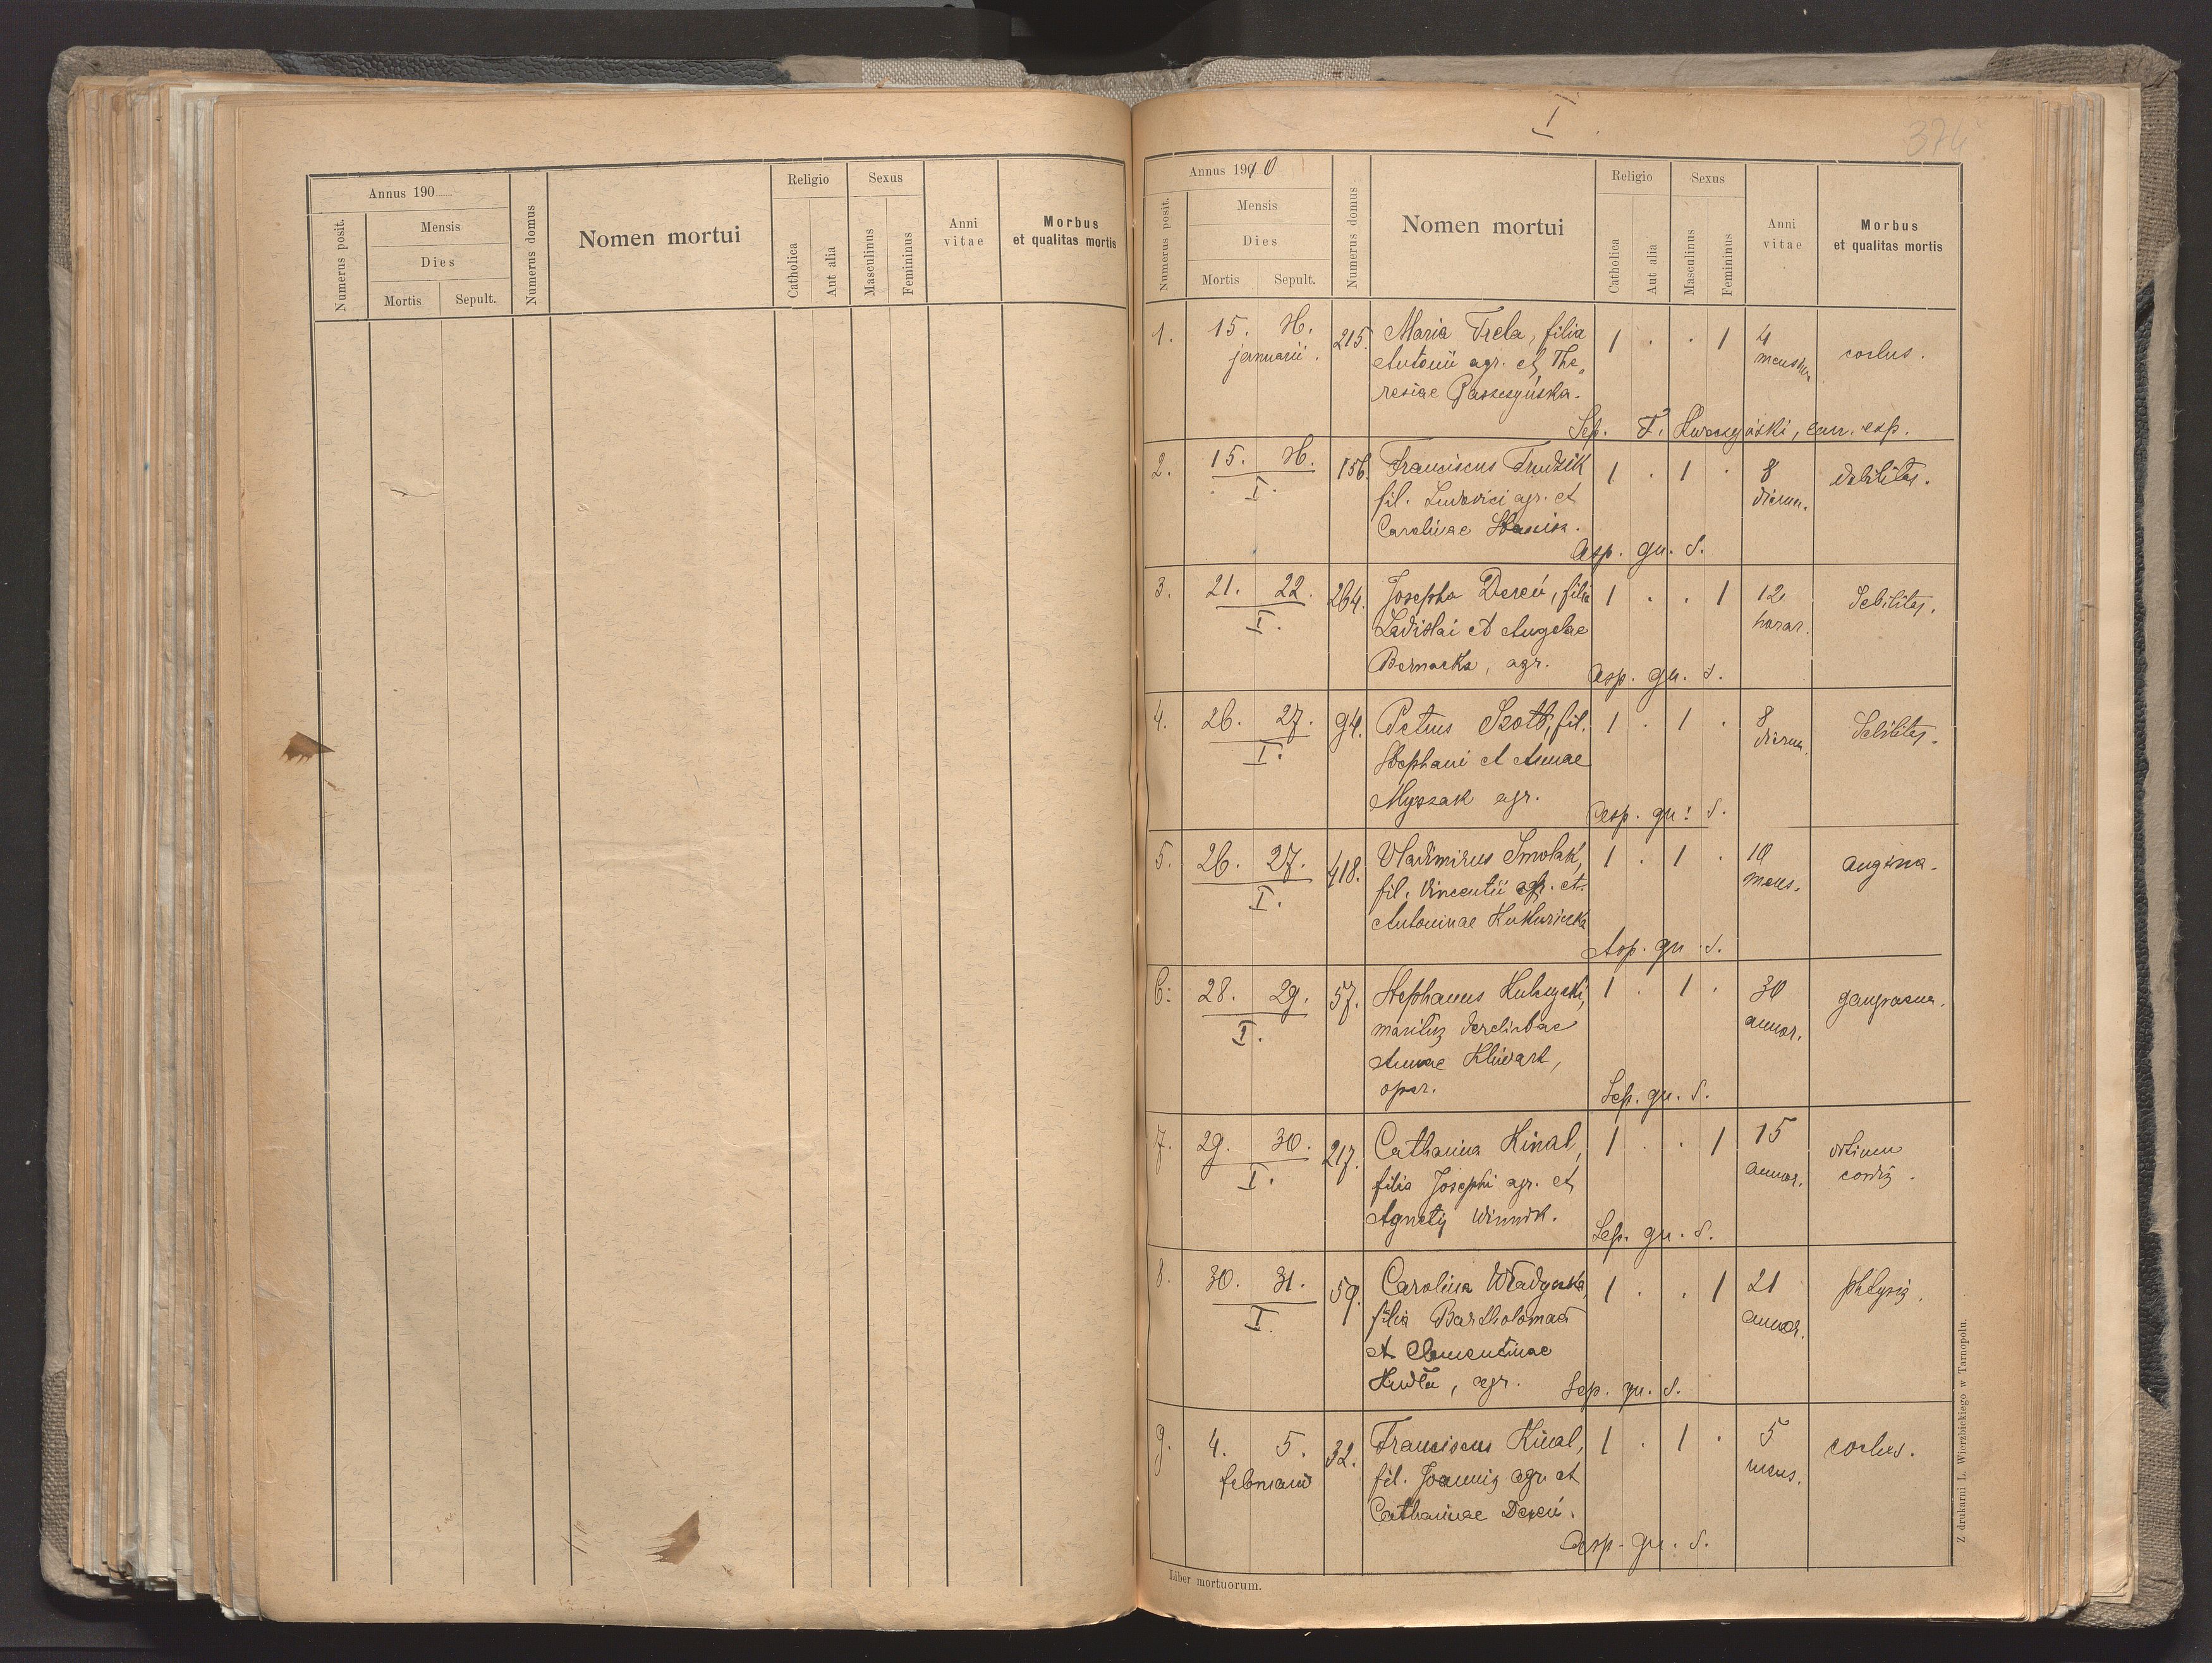 Annus 190
Numerus posit.
Mensis
Dies
Mortis Sepult.
Numerus domus
Nomen mortui
Religio
Catholica
Aut alia
Sexus
Masculinus
Femininus
Anni
vitae
Morbus
et qualitas mortis
I
374
Annus 1910
Numerus posit.
Mensis
Dies
Mortis Sepult.
Numerus domus
Nomen mortui
Religio
Catholica
Aut alia
Sexus
Masculinus
Femininus
Anni
vitae
Morbus
et qualitas mortis
1. 15. 215. Maria Trela, filia 1 . . 1 4
januarii. Antonii agr. et The„
resiae
Sep. F. coop. exp.
2. 15. 156. Franciscus Trudzik 1 . 1 . 8 debilitas.
I. fil. Ludovici agr. et dierum.
Carolinae
asp. qu. s.
3. 21. 22. 264. Josepha Dereń, filia 1 . . 1 12 debilitas.
I. Ladislai et Angelae horar.
Bernacka, agr.
asp. qu. s.
4. 26. 27. 94. Petrus Szott, fil. 1 . 1 . 8 debilitas.
I. Stephani et Annae dierum.
Myszak agr.
asp. qu. s.
5. 26. 27. 418. Vladimirus Smolak, 1 . 1 . 10 angina.
I. fil. Vincentii agr. et mens.
Antoninae
Asp. qu. s.
6. 28. 29. 57. Stephanus 1 . 1 . 30 gangraena.
I. maritus derelictae annor.
Annae
oper.
Sep. qu. s.
7. 29. 30. 217. Catharina Kinal, 1 . . 1 15 vitium
I. filia Josephi agr. et annor. cordis.
Agnetis Winnik.
Sep. qu. s.
8. 30. 31. 59. Carolina 1 . . 1 21 phtysis.
I. filia Bartholomaei annor.
et Clementinae
Kudła, agr.
Sep. qu. s.
9. 4. 5. 32. Franciscus Kinal, 1 . 1 . 5
februarii fil. Joannis agr. et mens.
Catharinae Dereń.
asp. qu. s.
Liber mortuorum.
Z drukarni L. Wierzbickiego w Tarnopolu.